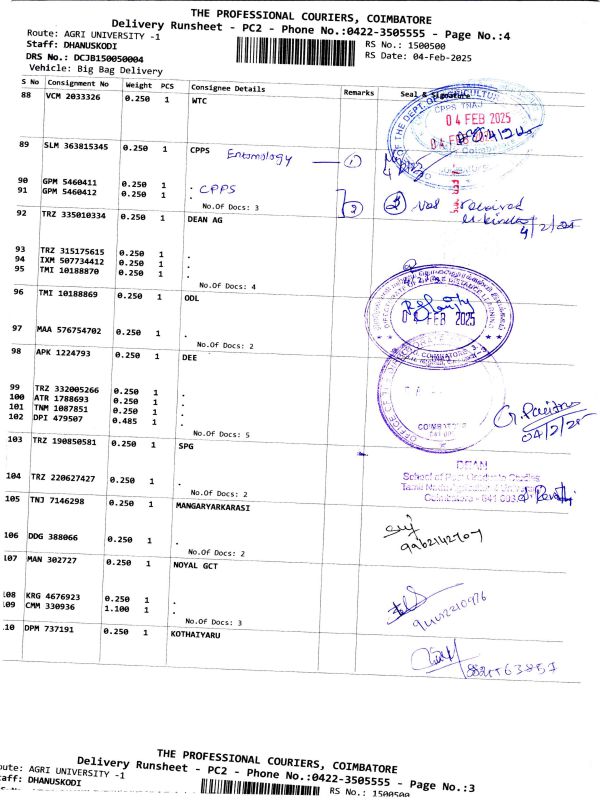 THE PROFESSIONAL COURIERS, COIMBATORE
Delivery Runsheet - PC2 - Phone No.:0422-3505555 - Page No.:4
Route: AGRI UNIVERSITY -1
Staff: DHANUSKODI
RS No.: 1500500
DRS No.: DCJB150050004
RS Date: 04-Feb-2025
Vehicle: Big Bag Delivery
S No Consignment No Weight PCS Consignee Details Remarks Seal &
88 VCM 2033326 0.250 1 WTC
OF THE DEPT. OF AGRICULTUR
CPPS TNAJ
04 FEB 2025
04 FEB
Coimbatore
89 SLM 363815345 0.250 1 CPPS Entomology 1
90 GPM 5460411 0.250 1 .
91 GPM 5460412 0.250 1 . CPPS
No.Of Docs: 3
2 2 received
4/2/25
92 TRZ 335010334 0.250 1 DEAN AG
93 TRZ 315175615 0.250 1 .
94 IXM 507734412 0.250 1 .
95 TMI 10188870 0.250 1 .
No.Of Docs: 4
96 TMI 10188869 0.250 1 ODL
DISTANCE LEARNING
04 FEB 2025
COIMBATORE 3
97 MAA 576754702 0.250 1 .
No.Of Docs: 2
98 APK 1224793 0.250 1 DEE
OFFICE OF THE
COIMBATORE
99 TRZ 332005266 0.250 1 .
100 ATR 1788693 0.250 1 .
101 TNM 1087851 0.250 1 .
102 DPI 479507 0.485 1 .
No.Of Docs: 5
04/2/25
103 TRZ 190850581 0.250 1 SPG
DEAN
School of Post Graduate Studies
Tamil Nadu Agricultural
Coimbatore - 641 003.
104 TRZ 220627427 0.250 1 .
No.Of Docs: 2
105 TNJ 7146298 0.250 1 MANGARYARKARASI
106 DDG 388066 0.250 1 .
No.Of Docs: 2
107 MAN 302727 0.250 1 NOYAL GCT
108 KRG 4676923 0.250 1 .
109 CMM 330936 1.100 1 .
No.Of Docs: 3
110 DPM 737191 0.250 1 KOTHAIYARU
THE PROFESSIONAL COURIERS, COIMBATORE
Delivery Runsheet - PC2 - Phone No.:0422-3505555 - Page No.:3
oute: AGRI UNIVERSITY -1
taff: DHANUSKODI
RS No.: 1500500